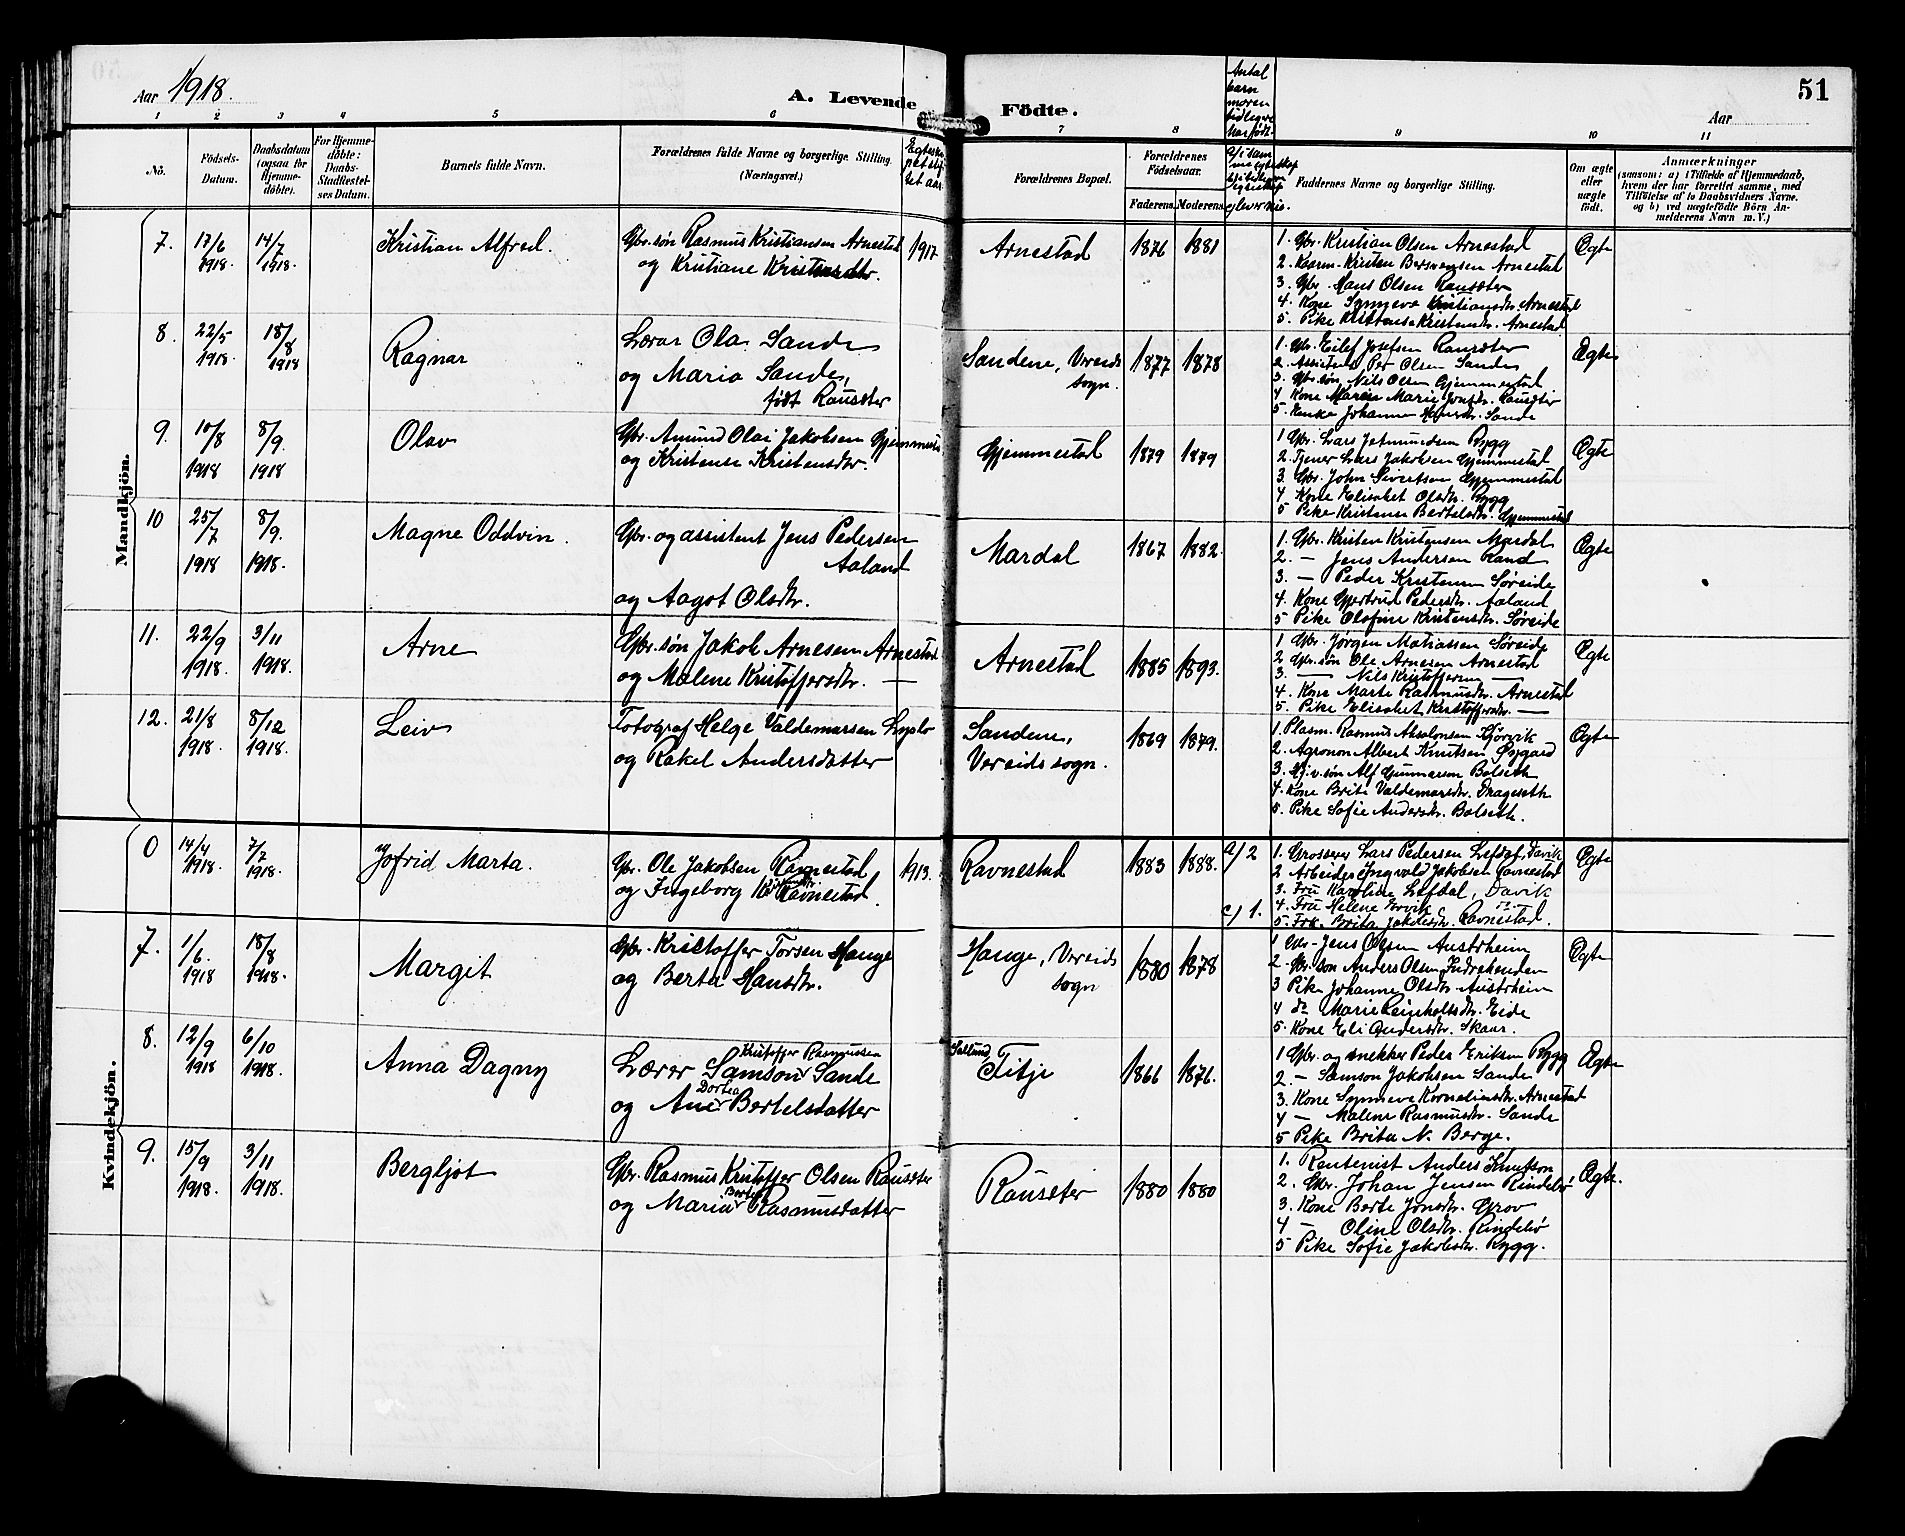 Aar 1918.
A. Levende
Födte.
51
Aar
1 2 3 4 5 6 7 8 9 10 11
No.
Födsels-
Datum.
Daabsdatum
(ogsaa for
Hjemme-
döbte).
For Hjemme-
döbte:
Daabs-
Stadfæstel-
ses Datum.
Barnets fulde Navn.
Forældrenes fulde Navne og borgerlige Stilling.
(Næringsvei.)
Forældrenes Bopæl.
Forældrenes
Födselsaar.
Faderens. Moderens.
Antal
barn
moren
tidlegere
har født
Faddernes Navne og borgerlige Stilling.
Om ægte
eller
uægte
födt.
Anmærkninger
(saasom: a) i Tilfælde af Hjemmedaab,
hvem der har forrettet samme, med
Tilföielse af to Daabsvidners Navne.
og b) ved uægtefödte Börn An-
melderens Navn m. V.)
Mandkjön.
7. 17/6 1918. 14/7 1918. Kristian Alfred.
Gbr. søn Rasmus Kristiansen Arnestad 1917
og Kristiane Kristensdtr.
Arnestad 1876 1881
1. Gbr. Kristian Olsen Arnestad
2. Kaarm. Kristen Bersvensen Arnestad
3. Gbr. Hans Olsen Rausæter
4. Kone Synneva Kristiansdtr. Arnestad
5. Pike Kristense Kristensdtr. Arnestad
Ægte
8. 22/5 1918. 18/8 1918 Ragnar
Lærar Ola Sande
og Maria Sande,
født Rausæter
Sandene, Vereids
sogn. 1877 1878
1. Gbr. Eilef Josefsen Rausæter
2. Assistent Per Olsen Sande
3. Gbr. søn Nils Olsen Gjemmestad
4. Kone Maren Marie Jonsdtr. Rausæter
5. Enke Johanne Hansdtr. Sande
Ægte
9. 10/8 1918 8/9. 1918 Olav
Gbr. Amund Olai Jakobsen Gjemmestad
og Kristense Kristensdtr.
Gjemmestad 1879 1879
1 Gbr. Lars Jetmundsen Rygg
2. Tjener Lars Jakobsen Gjemmestad
3. Gbr. John Sivertsen Gjemmestad
4 Kone Elisabet Olsdtr. Rygg
5 Pike Kristense Bertelsdtr. Gjemmestad
Ægte
10 25/7 1918 8/9. 1918. Magne Oddvin.
Gbr. og assistent Jens Pedersen
Aaland
og Aagot Olsdtr.
Mardal 1867 1882.
1. Gbr. Kristen Kristensen Mardal
2. — Jens Andersen Rand
3. — Peder Kristensen Søreide
4. Kone Gjertrud Pedersdtr. Aaland
5 Pike Olofine Kristensdtr. Søreide
Ægte
11. 22/9 1918. 3/11 1918. Arne
Gbr. søn Jakob Arnesen Arnestad
og Malene Kristoffersdtr. —
Arnestad 1885 1893.
1 Gbr. Jørgen Matiassen Søreide
2 Gbr. søn Ole Arnesen Arnestad
3. — Nils Kristoffersen —
4. Kone Marte Rasmusdtr. Arnestad
5. Pike Elisabet Kristoffersdtr. —
Ægte
12. 21/8 1918. 8/12 1918. Leiv
Fotograf Helge Valdemarsen Lyslo
og Rakel Andersdatter
Sandene,
Vereids sogn. 1869 1879.
1. Plasm. Rasmus Absalonsen Kjørvik
2. Agronom Albert Knutsen Øygard
3. Gbr. søn Alf Gunnarson Bolseth
4. Kone Brite Valdemarsdtr. Drageseth
5. Pike Sofie Andersdtr. Bolseth.
Ægte
Kvindekjön.
0 14/4 1918. 7/7 1918. Jofrid Marta.
Gbr. Ole Jakobsen Ravnestad 1913.
og Ingeborg Ravnestad.
Ravnestad 1883 1888. a/2
c/1.
1. Grosserer Lars Pedersen Lefdal, Davik
2 Arbeider Ingvald Jakobsen Ravnestad
3. Fru Karoline Lefdal, Davik
4. Fru Helene Ervik
5. Frk. Brita Jakobsdtr. Ravnestad.
Ægte
7. 1/6. 1918 18/8 1918. Margit
Gbr. Kristoffer Torsen Hauge
og Berta Hansdtr.
Hauge, Vereids
sogn 1880 1878
1 Gbr. Jens Olsen Austrheim
2. Gbr. søn Anders Olsen Indrehender
3 Pike Johanne Olsdtr. Austrheim
4 do Marie Reinholtsdtr. Eide
5. Kone Eli Andersdtr. Skaar.
Ægte
8. 12/9 1918 6/10 1918. Anna Dagny
Kristoffer Rasmussen
Lærer Samson Sande
Dortea
og Ane Bertelsdatter
Sølund,
Fitje 1866 1876.
1 Gbr. og snekker Peder Eriksen Rygg
2. — Samson Jakobsen Sande
3. Kone Synneve Korneliusdtr. Arnestad
4 — Malene Rasmusdtr. Sande
5 Pike Brita N. Berge.
Ægte
9. 15/9 1918. 3/11 1918. Bergljot
Gbr. Rasmus Kristoffer Olsen Rausæter
Bertea
og Maria Rasmusdatter
Rausæter 1880 1880
1. Rentenist Anders Knutson
2. Gbr. Johan Jensen Rindebø
3. Kone Berte Jonsdtr. Grov
4 — Oline Olsdtr. Rindebø
5 Pike Sofie Jakobsdtr. Rygg.
Ægte.